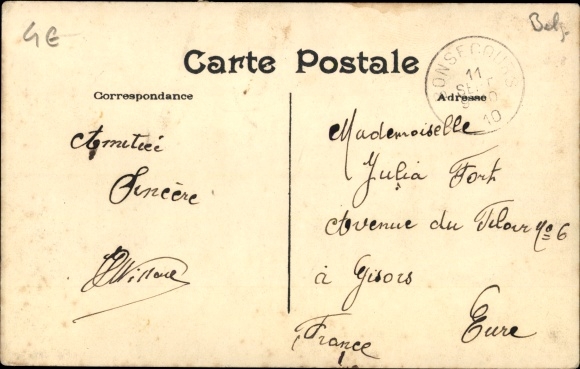 4 E
Belg.
Carte Postale
Correspondance
Adresse
BONSECOURS
11
SEPT
10
Amitiée
Sincère
Mademoiselle
Julia Fort
Avenue du No 6
à Gisors
Eure
France